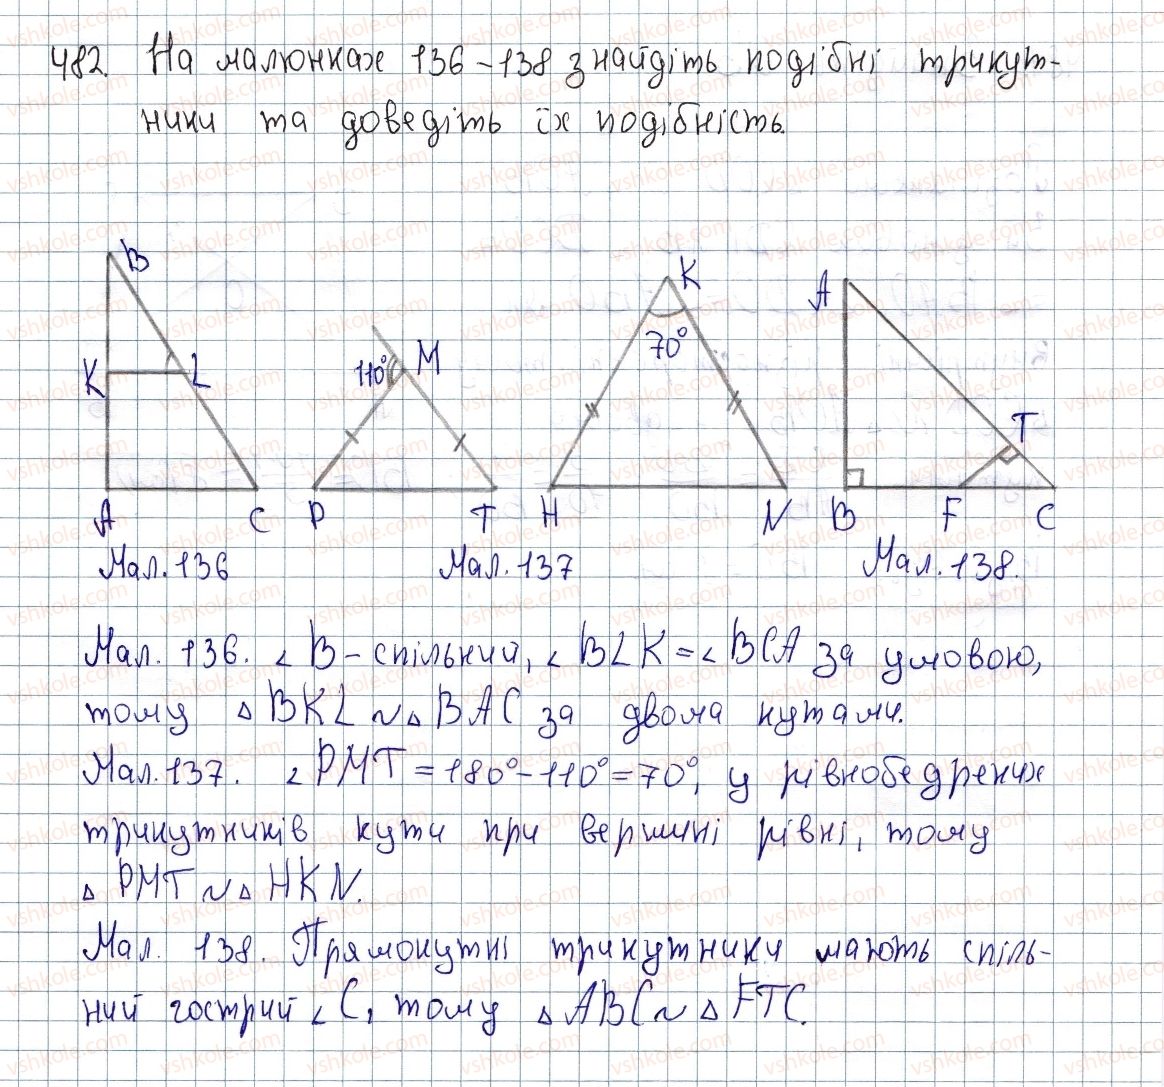 482. На малюнках 136-138 знайдіть подібні трикут-
ники та доведіть їх подібність.
B
K
L
A
C
Мал. 136
110°
M
P
T
K
70°
H
N
Мал. 137
A
T
B
F
C
Мал. 138.
Мал. 136. ∠B - спільний, ∠BLK = ∠BCA за умовою,
тому ▵BKL ~ ▵BAC за двома кутами.
Мал. 137. ∠PMT = 180° - 110° = 70°, у рівнобедрених
трикутників кути при вершині рівні, тому
▵PMT ~ ▵HKN.
Мал. 138. Прямокутні трикутники мають спіль-
ний гострий ∠C, тому ▵ABC ~ ▵FTC.
vshkole.com